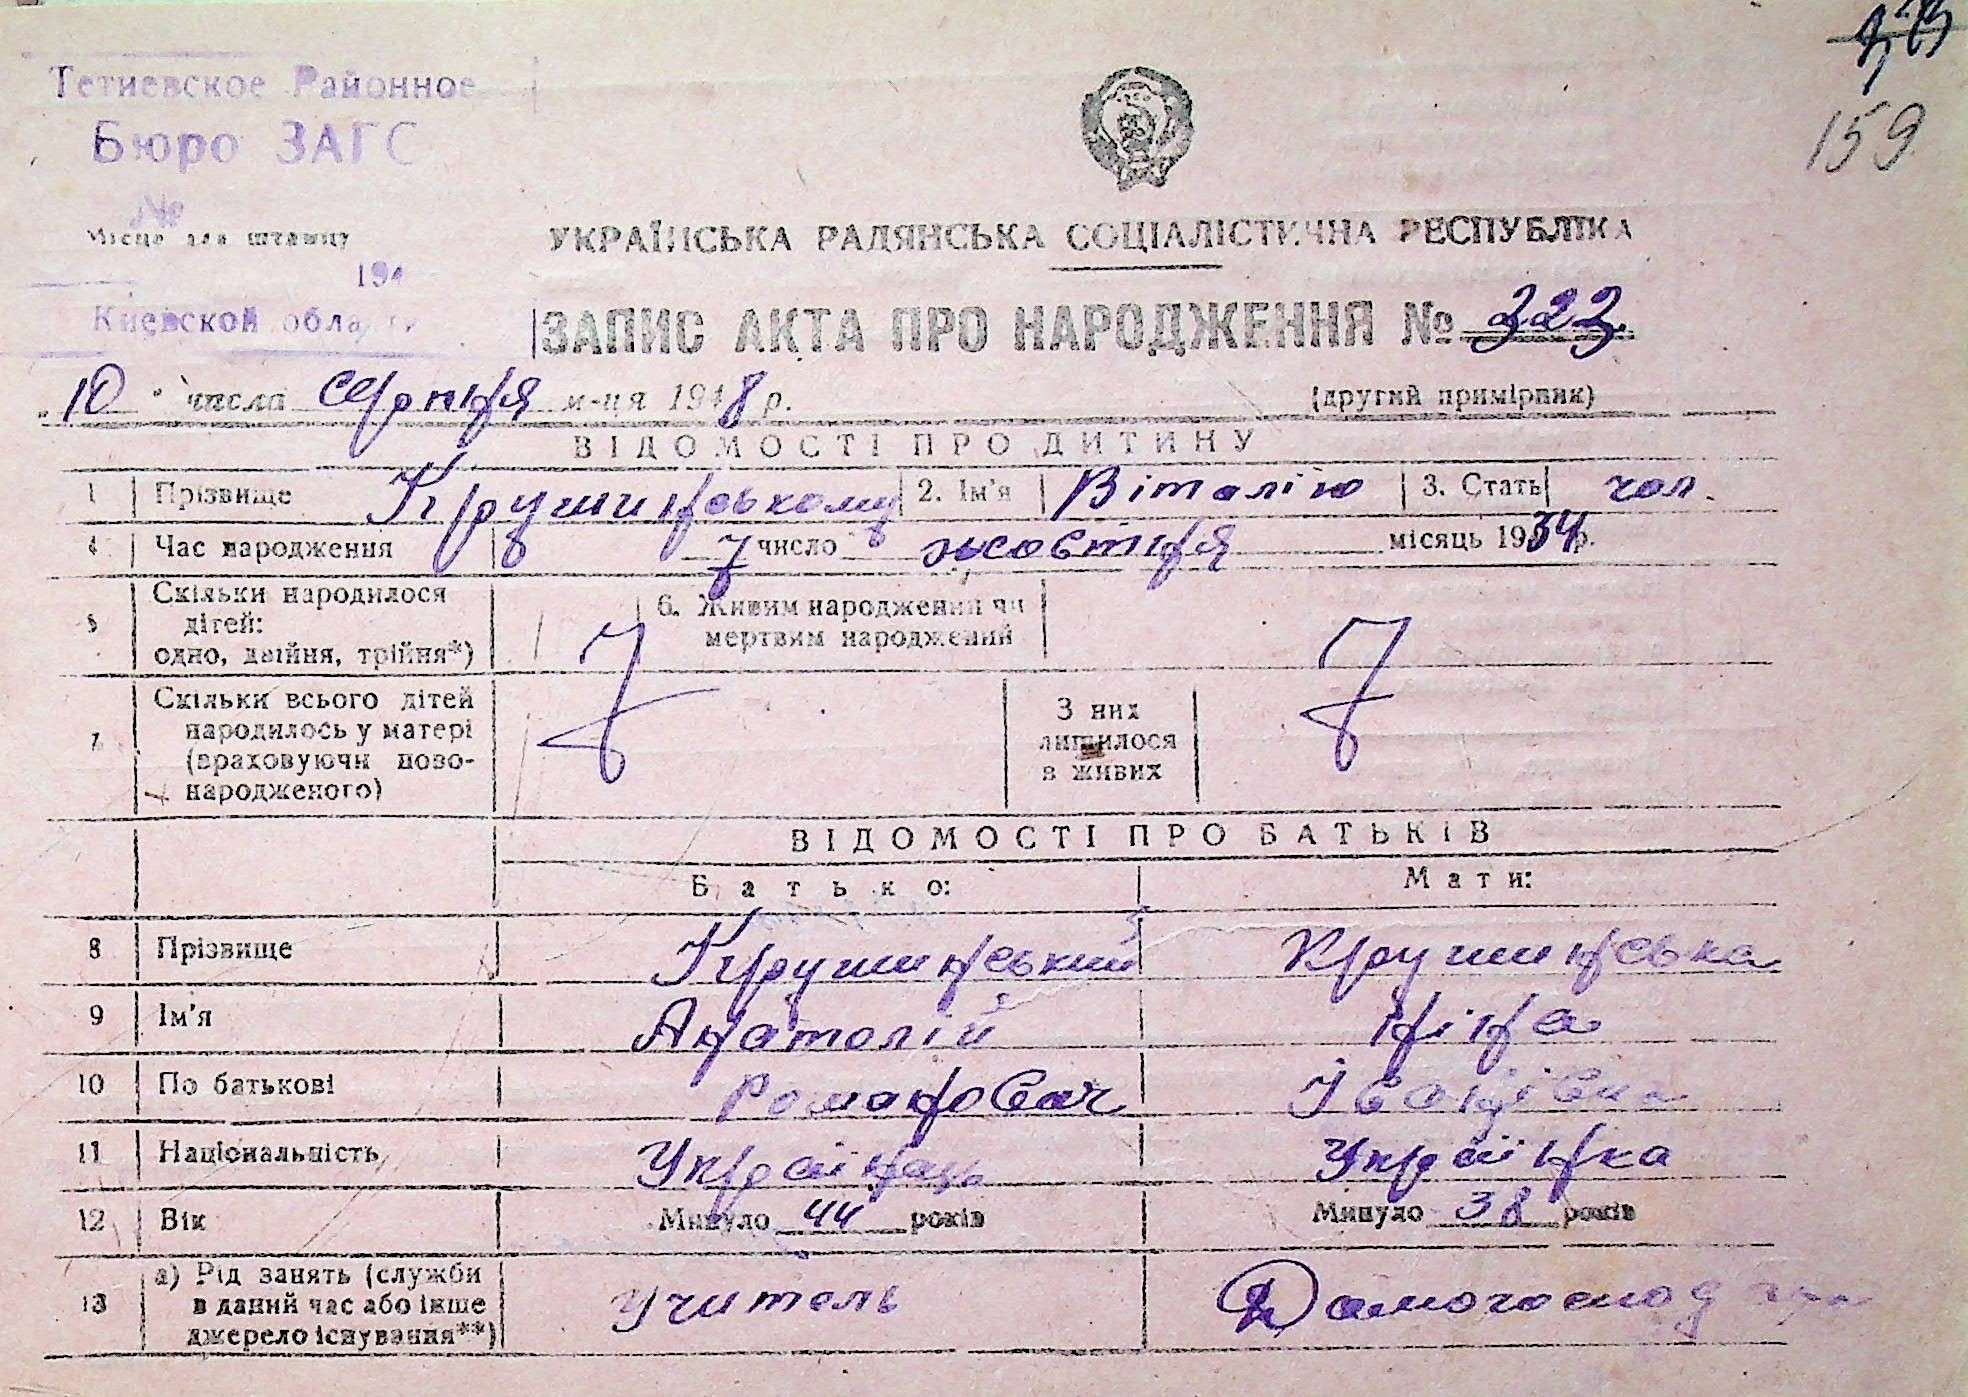 159
Тетиевское Районное
Бюро ЗАГС
№
Місце для штампу
194
Киевской области
УКРАЇНСЬКА РАДЯНСЬКА СОЦІАЛІСТИЧНА РЕСПУБЛІКА
ЗАПИС АКТА ПРО НАРОДЖЕННЯ № 222
„10" числа серпня м-ця 1948 р. (другий примірник)
ВІДОМОСТІ ПРО ДИТИНУ
1 Прізвище Крушинському 2. Ім'я Віталію 3. Стать чол.
4 Час народження 7 число жовтня місяць 1934 р.
5 Скільки народилося
дітей:
одно, двійня, трійня*)
6. Живим народжений чи
мертвим народжений
7 Скільки всього дітей
народилось у матері
(враховуючи ново-
народженого)
З них
лишилося
в живих
ВІДОМОСТІ ПРО БАТЬКІВ
Батько: Мати:
8 Прізвище Крушинський Крушинська
9 Ім'я Анатолій Ніна
10 По батькові Романович Іванівна
11 Національність Українець Українка
12 Вік Минуло 44 років Минуло 38 років
13 а) Рід занять (служби
в даний час або інше
джерело існування**)
Учитель Домогоспод